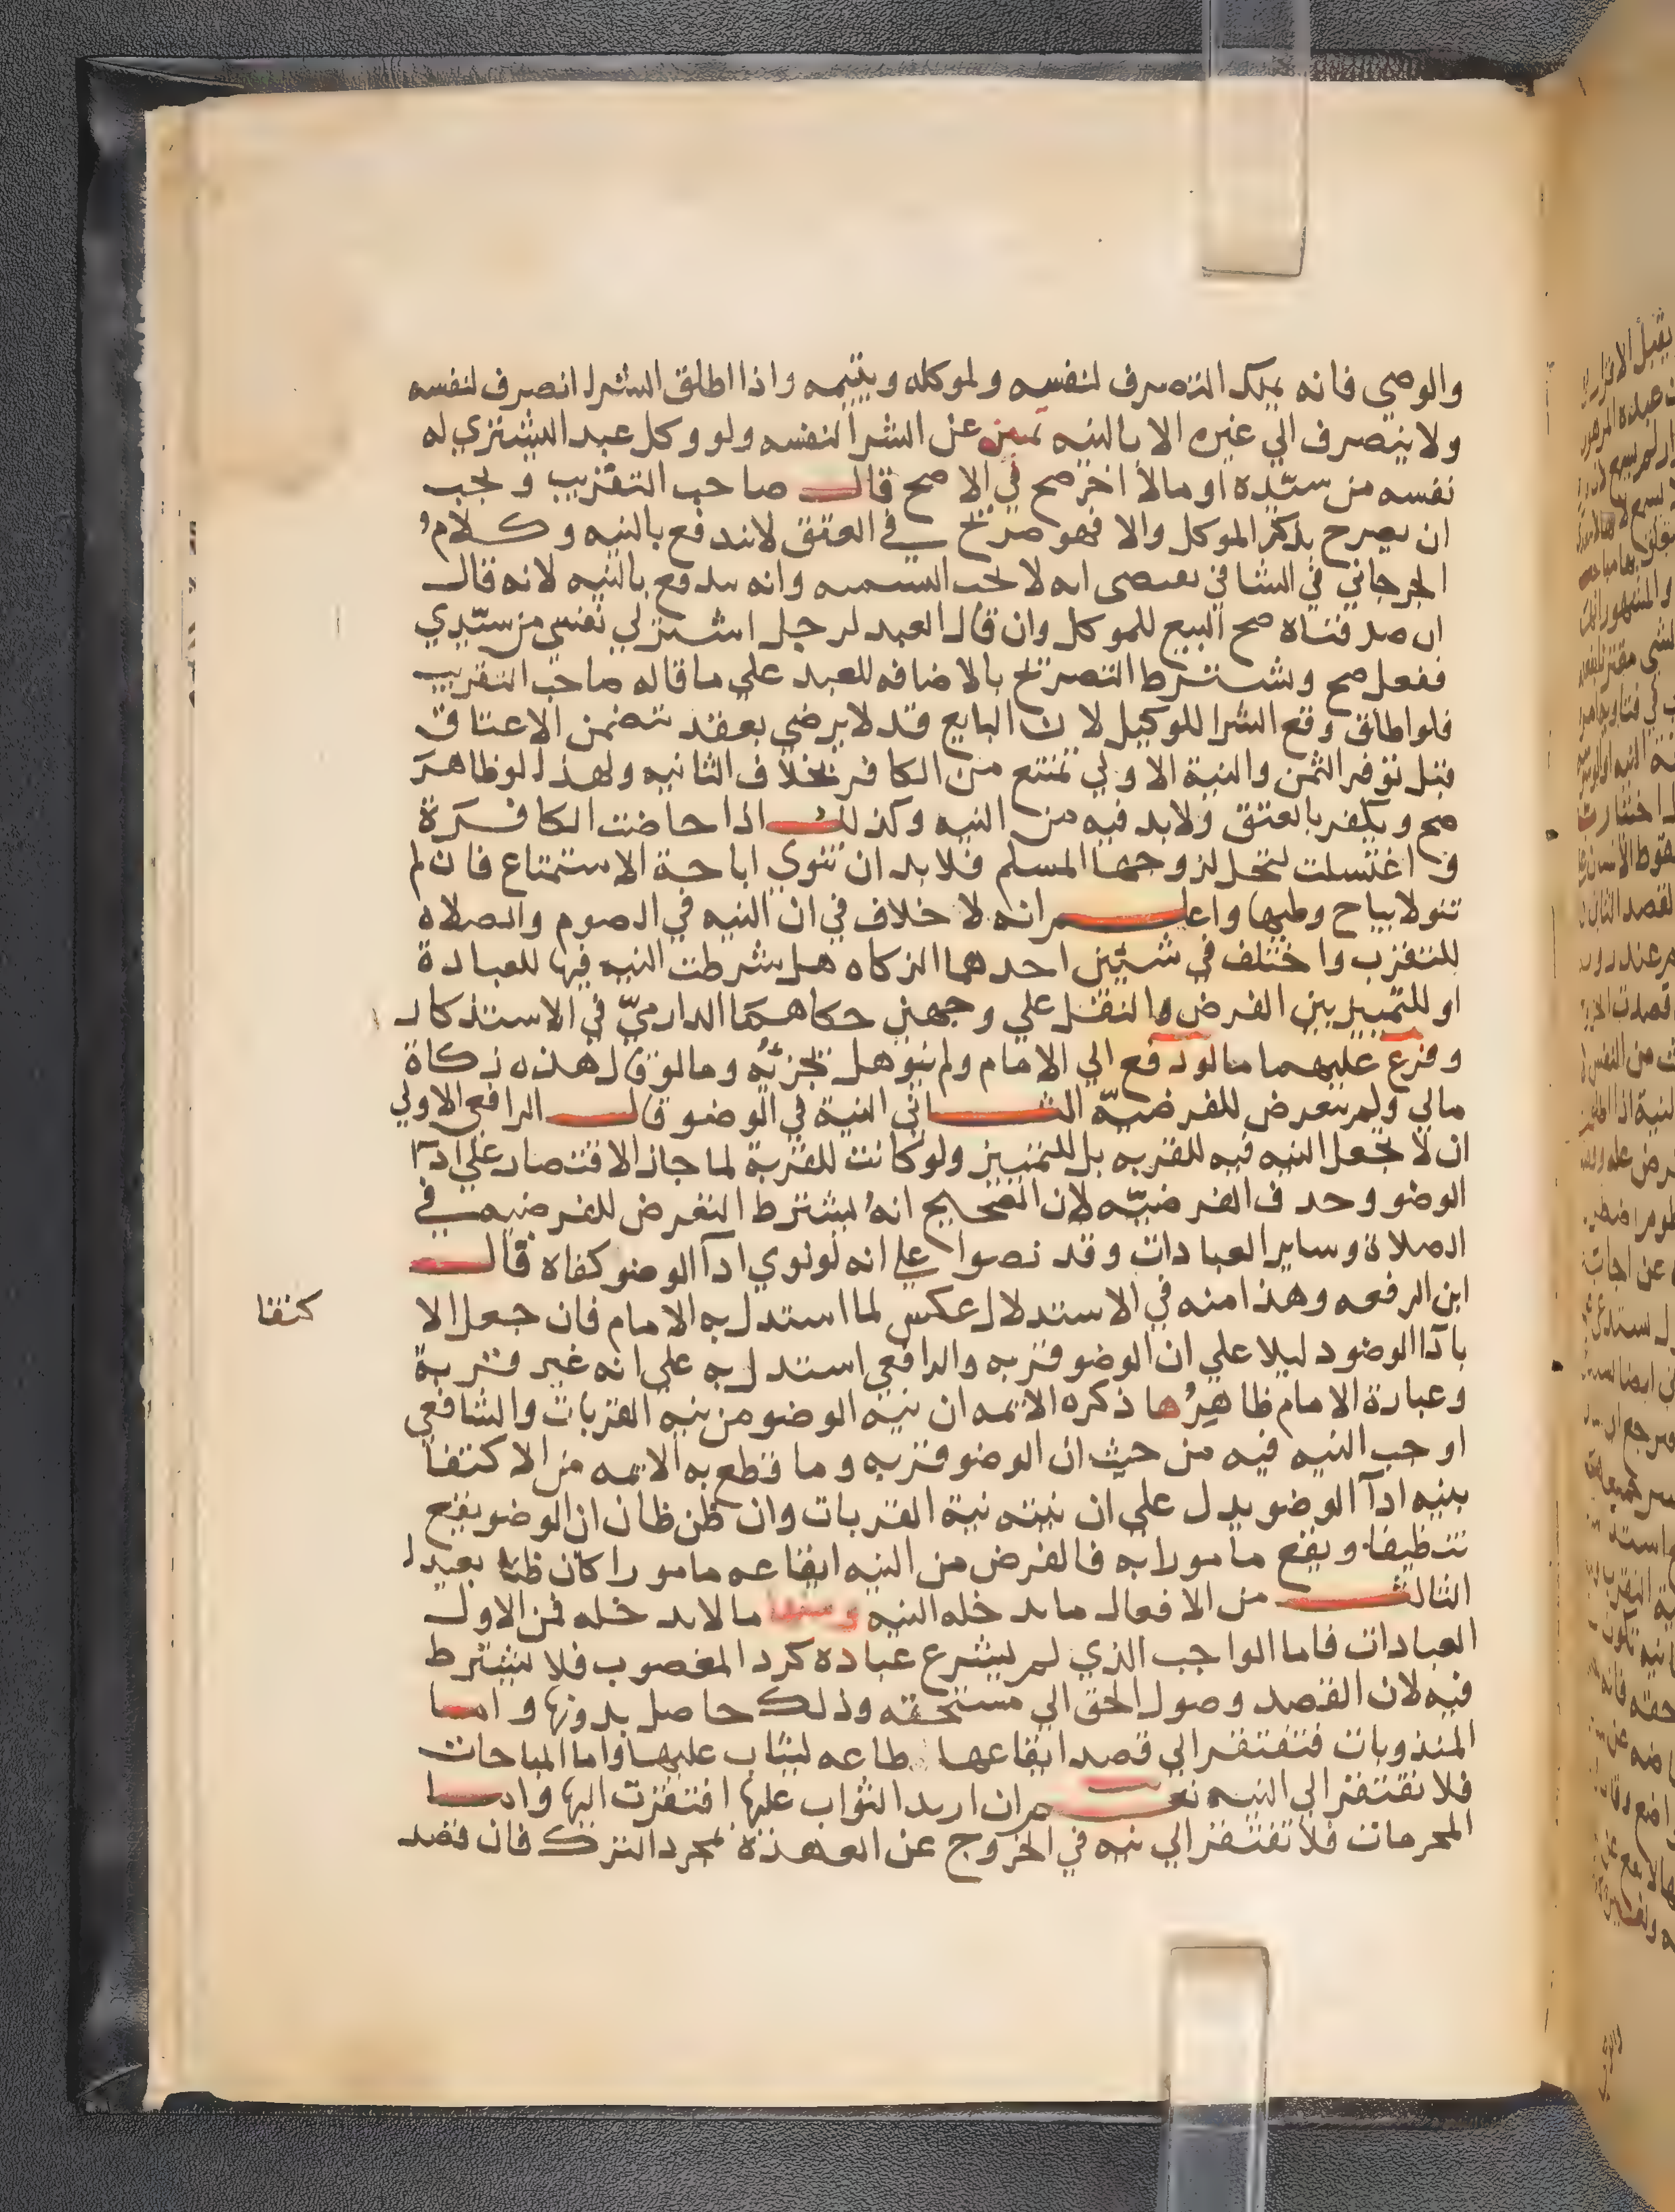 والوصي فانه يملك التصرف لنفسه ولموكله ويتيمه واذا اطلق الشرا انصرف لنفسه
ولا ينصرف الي غيره الا بالنيه تميز عن الشرا لنفسه ولو وكل عبد اليشتري له
نفسه من سيده او مالا اخر صح في الاصح قال صاحب التقريب ويجب
ان يصرح بذكر الموكل والا فهو صريح في العتق لا يندفع بالنيه وكلام
الجرجاني في الشافي يقتضي انه لا يجب التسميه وانه يندفع بالنيه لانه قال
ان صدقناه صح البيع للموكل وان قال العبد لرجل اشتر لي نفسي من سيدي
ففعل صح ويشترط التصريح بالاضافه للعبد علي ما قاله صاحب التقريب
فلو اطلق وقع الشرا للوكيل لان البايع قد لا يرضي بعقد يتضمن الاعتاق
قبل توفر الثمن والنية الاولي تمتنع من الكافر بخلاف الثانيه ولهذا لو ظاهر
صح ويكفر بالعتق ولابد فيه من النيه وكذلك اذا حاضت الكافرة
واغتسلت لتحل لزوجها المسلم فلابد ان تنوي اباحة الاستمتاع فان لم
تنو لا يباح وطيها واعلم انه لا خلاف في ان النيه في الصوم والصلاه
للتقرب واختلف في شيئين احدهما الزكاه هل شرطت النيه فيها للعبادة
او للتمييز بين الفرض والنفل علي وجهين حكاهما الدارمي في الاستذكار
وفرع عليهما ما لو دفع الي الامام ولم ينو هل يجزئه وما لو قال هذه زكاة
مالي ولم يتعرض للفرضية الثاني النية في الوضو قال الرافعي الاولي
ان لا يجعل النيه فيه للقربه بل للتمييز ولو كانت للقربة لما جاز الاقتصار علي ادآ
الوضو وحذف الفرضيه لان الصحيح انه يشترط التعرض للفرضيه في
الصلاة وساير العبادات وقد نصوا علي انه لو نوي ادآ الوضو كفاه قال
ابن الرفعه وهذا منه في الاستدلال عكس لما استدل به الامام فان جعل الا كتفا
بادآ الوضو دليلا علي ان الوضو قربه والرافعي استدل به علي انه غير قربة
وعبارة الامام ظاهرها ذكره الايمه ان نية الوضو من نيه القربات والشافعي
اوجب النيه فيه من حيث ان الوضو قربه وما قطع به الايمه من الاكتفا
بنيه ادآ الوضو يدل علي ان نيته نية القربات وان ظن ظان ان الوضو يقع
تنظيفا ويقع مامورا به فالغرض من النيه ايقاعه مامورا كان ظنا بعيدا
الثالث من الافعال ما يدخله النيه ومنها ما لا يدخله فمن الاول
العبادات فاما الواجب الذي لم يشرع عباده كرد المغصوب فلا يشترط
فيه لان القصد وصول الحق الي مستحقه وذلك حاصل بدونها واما
المندوبات فتفتقر الي قصد ايقاعها طاعه ليثاب عليها واما المباحات
فلا تفتقر الي النيه نعم ان اريد الثواب عليها افتقرت اليها واما
المحرمات فلا تفتقر الي نيه في الخروج عن العهدة بمجرد الترك فان قصد